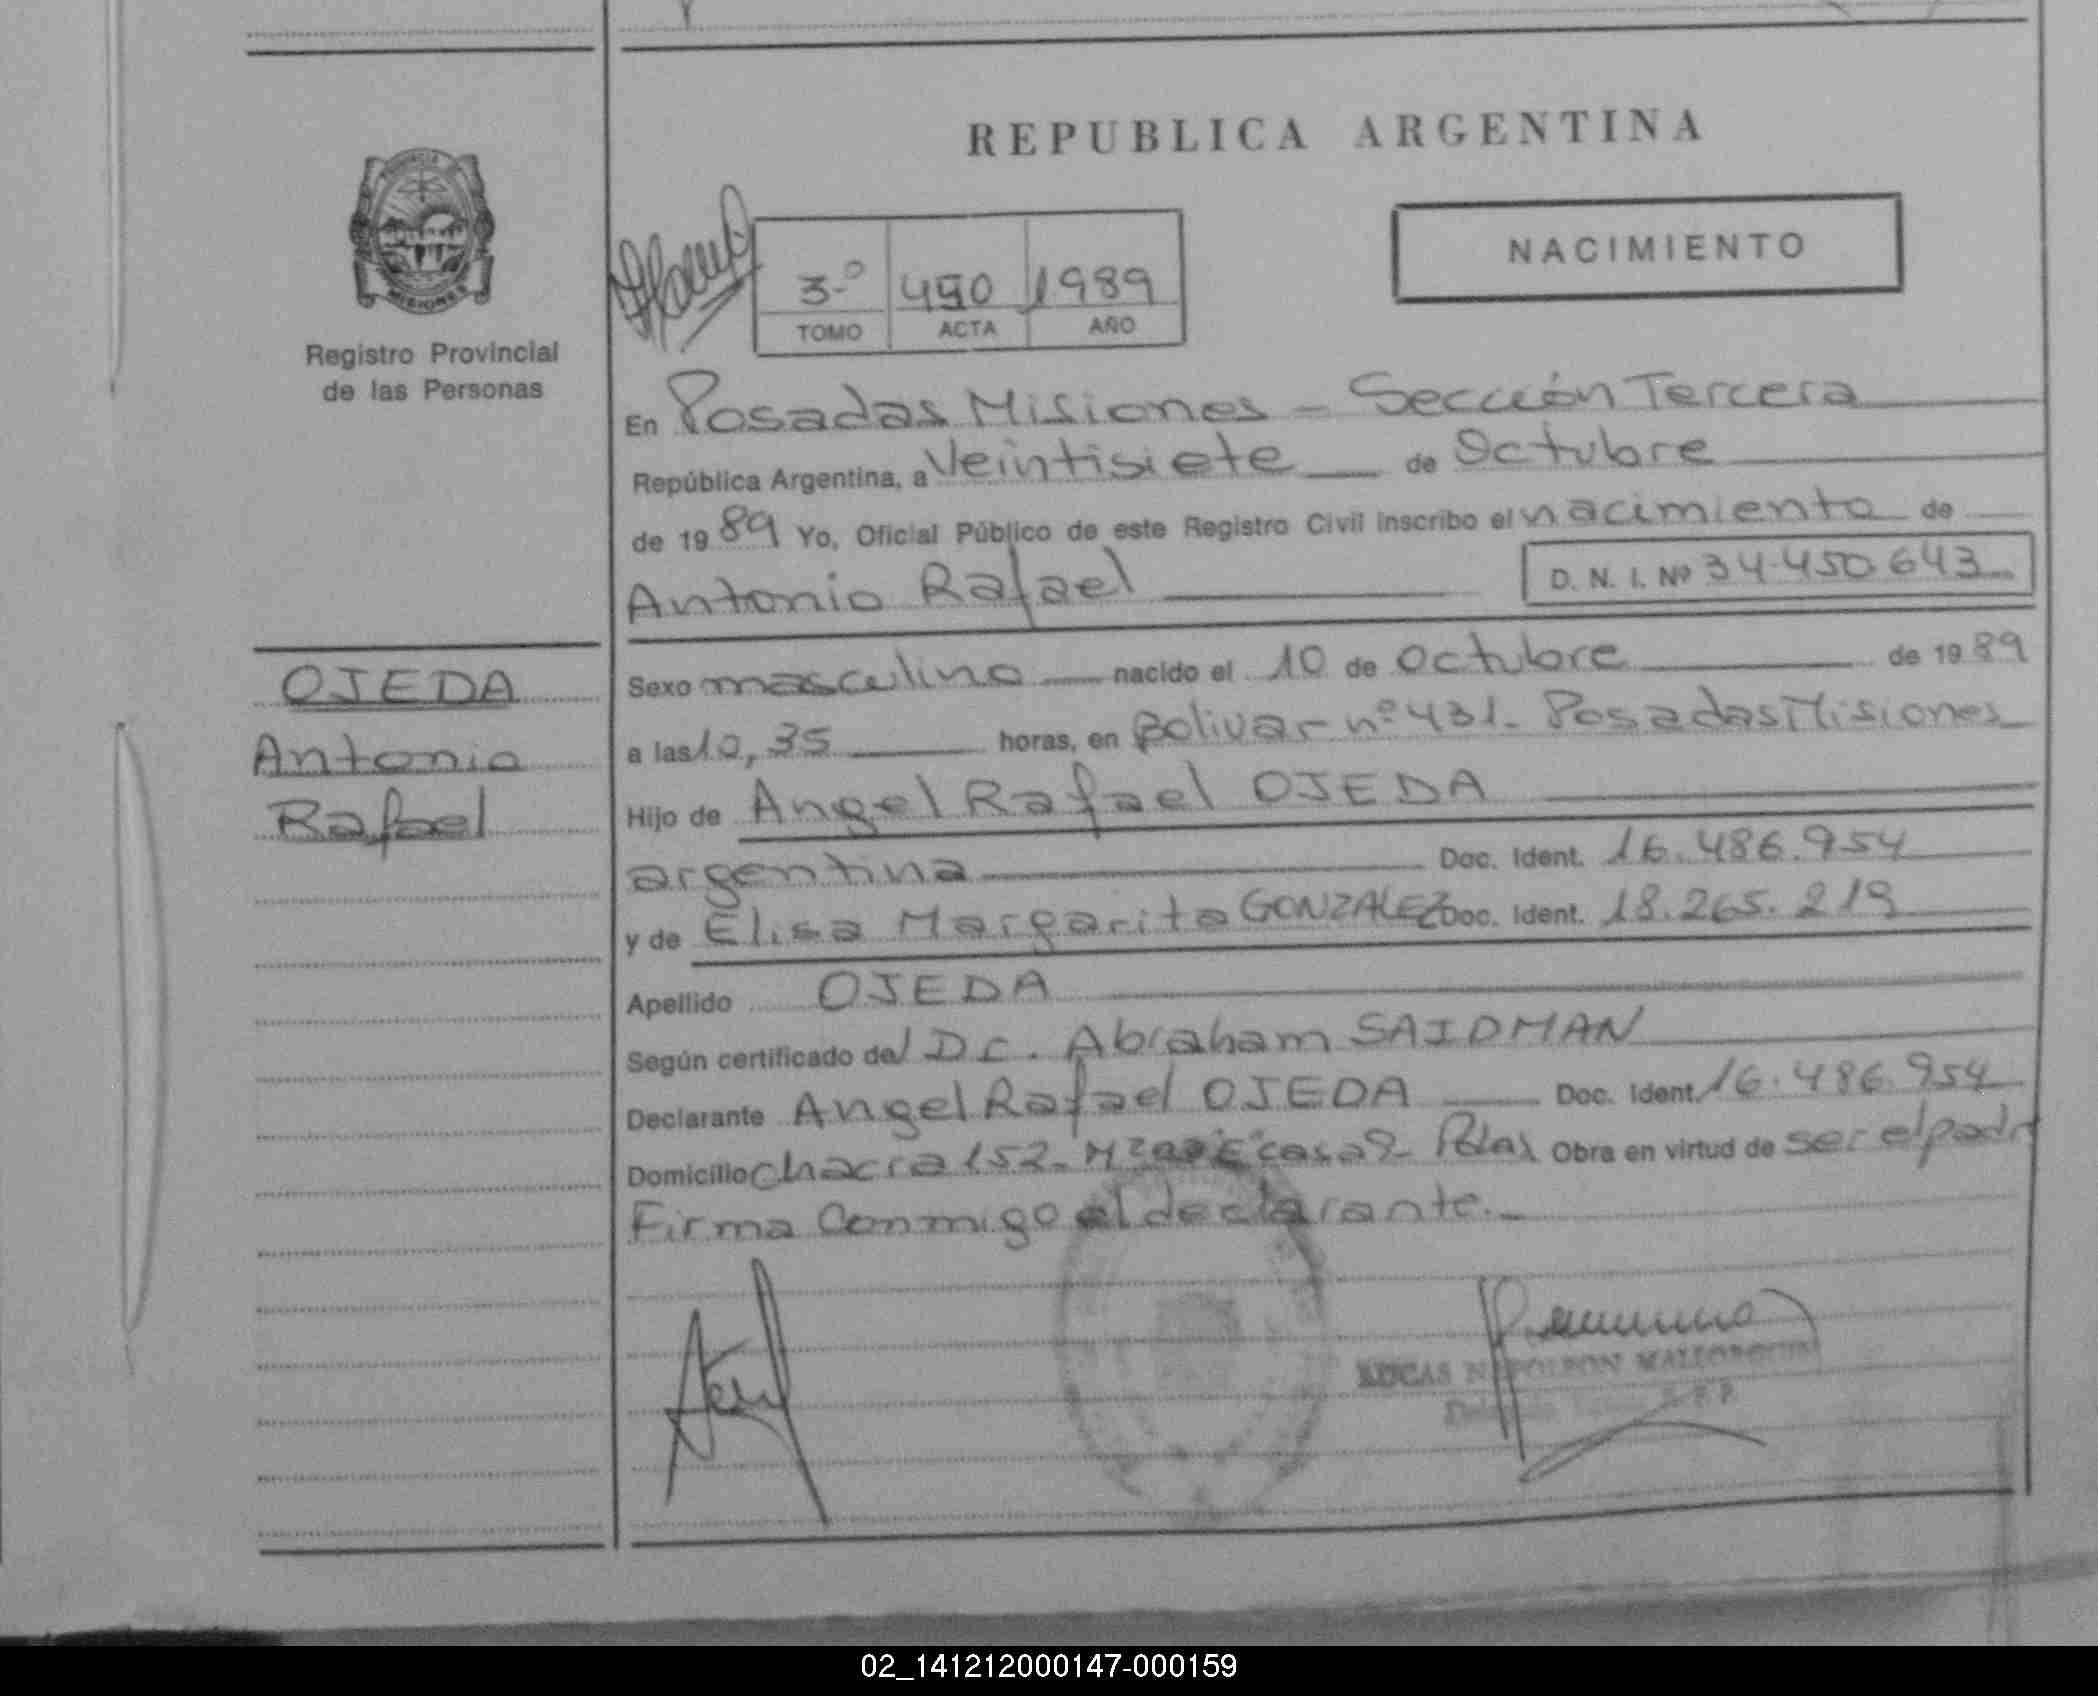 REPUBLICA ARGENTINA
PROVINCIA
MISIONES
Registro Provincial
de las Personas
NACIMIENTO
3-º 490 1989
TOMO ACTA AÑO
En Posadas Misiones - Sección Tercera
República Argentina, a Veintisiete de Octubre
de 1989 Yo, Oficial Público de este Registro Civil inscribo el nacimiento de
Antonio Rafael
D. N. I. Nº 34.450.643
OJEDA
Antonio
Rafael
Sexo masculino nacido el 10 de Octubre de 1989
a las 10,35 horas, en Bolivar nº 431- Posadas Misiones
Hijo de Angel Rafael OJEDA
argentina Doc. Ident. 16.486.954
y de Elisa Margarita GONZALEZ Doc. Ident. 18.265.219
Apellido OJEDA
Según certificado del Dr. Abraham SAIDMAN
Declarante Angel Rafael OJEDA Doc. Ident. 16.486.954
Domicilio Chacra 152- "E" casa 9- Pdas Obra en virtud de ser el padre
Firma Conmigo el declarante.-
LUCAS NAPOLEON MALLORQUIN
02_141212000147-000159